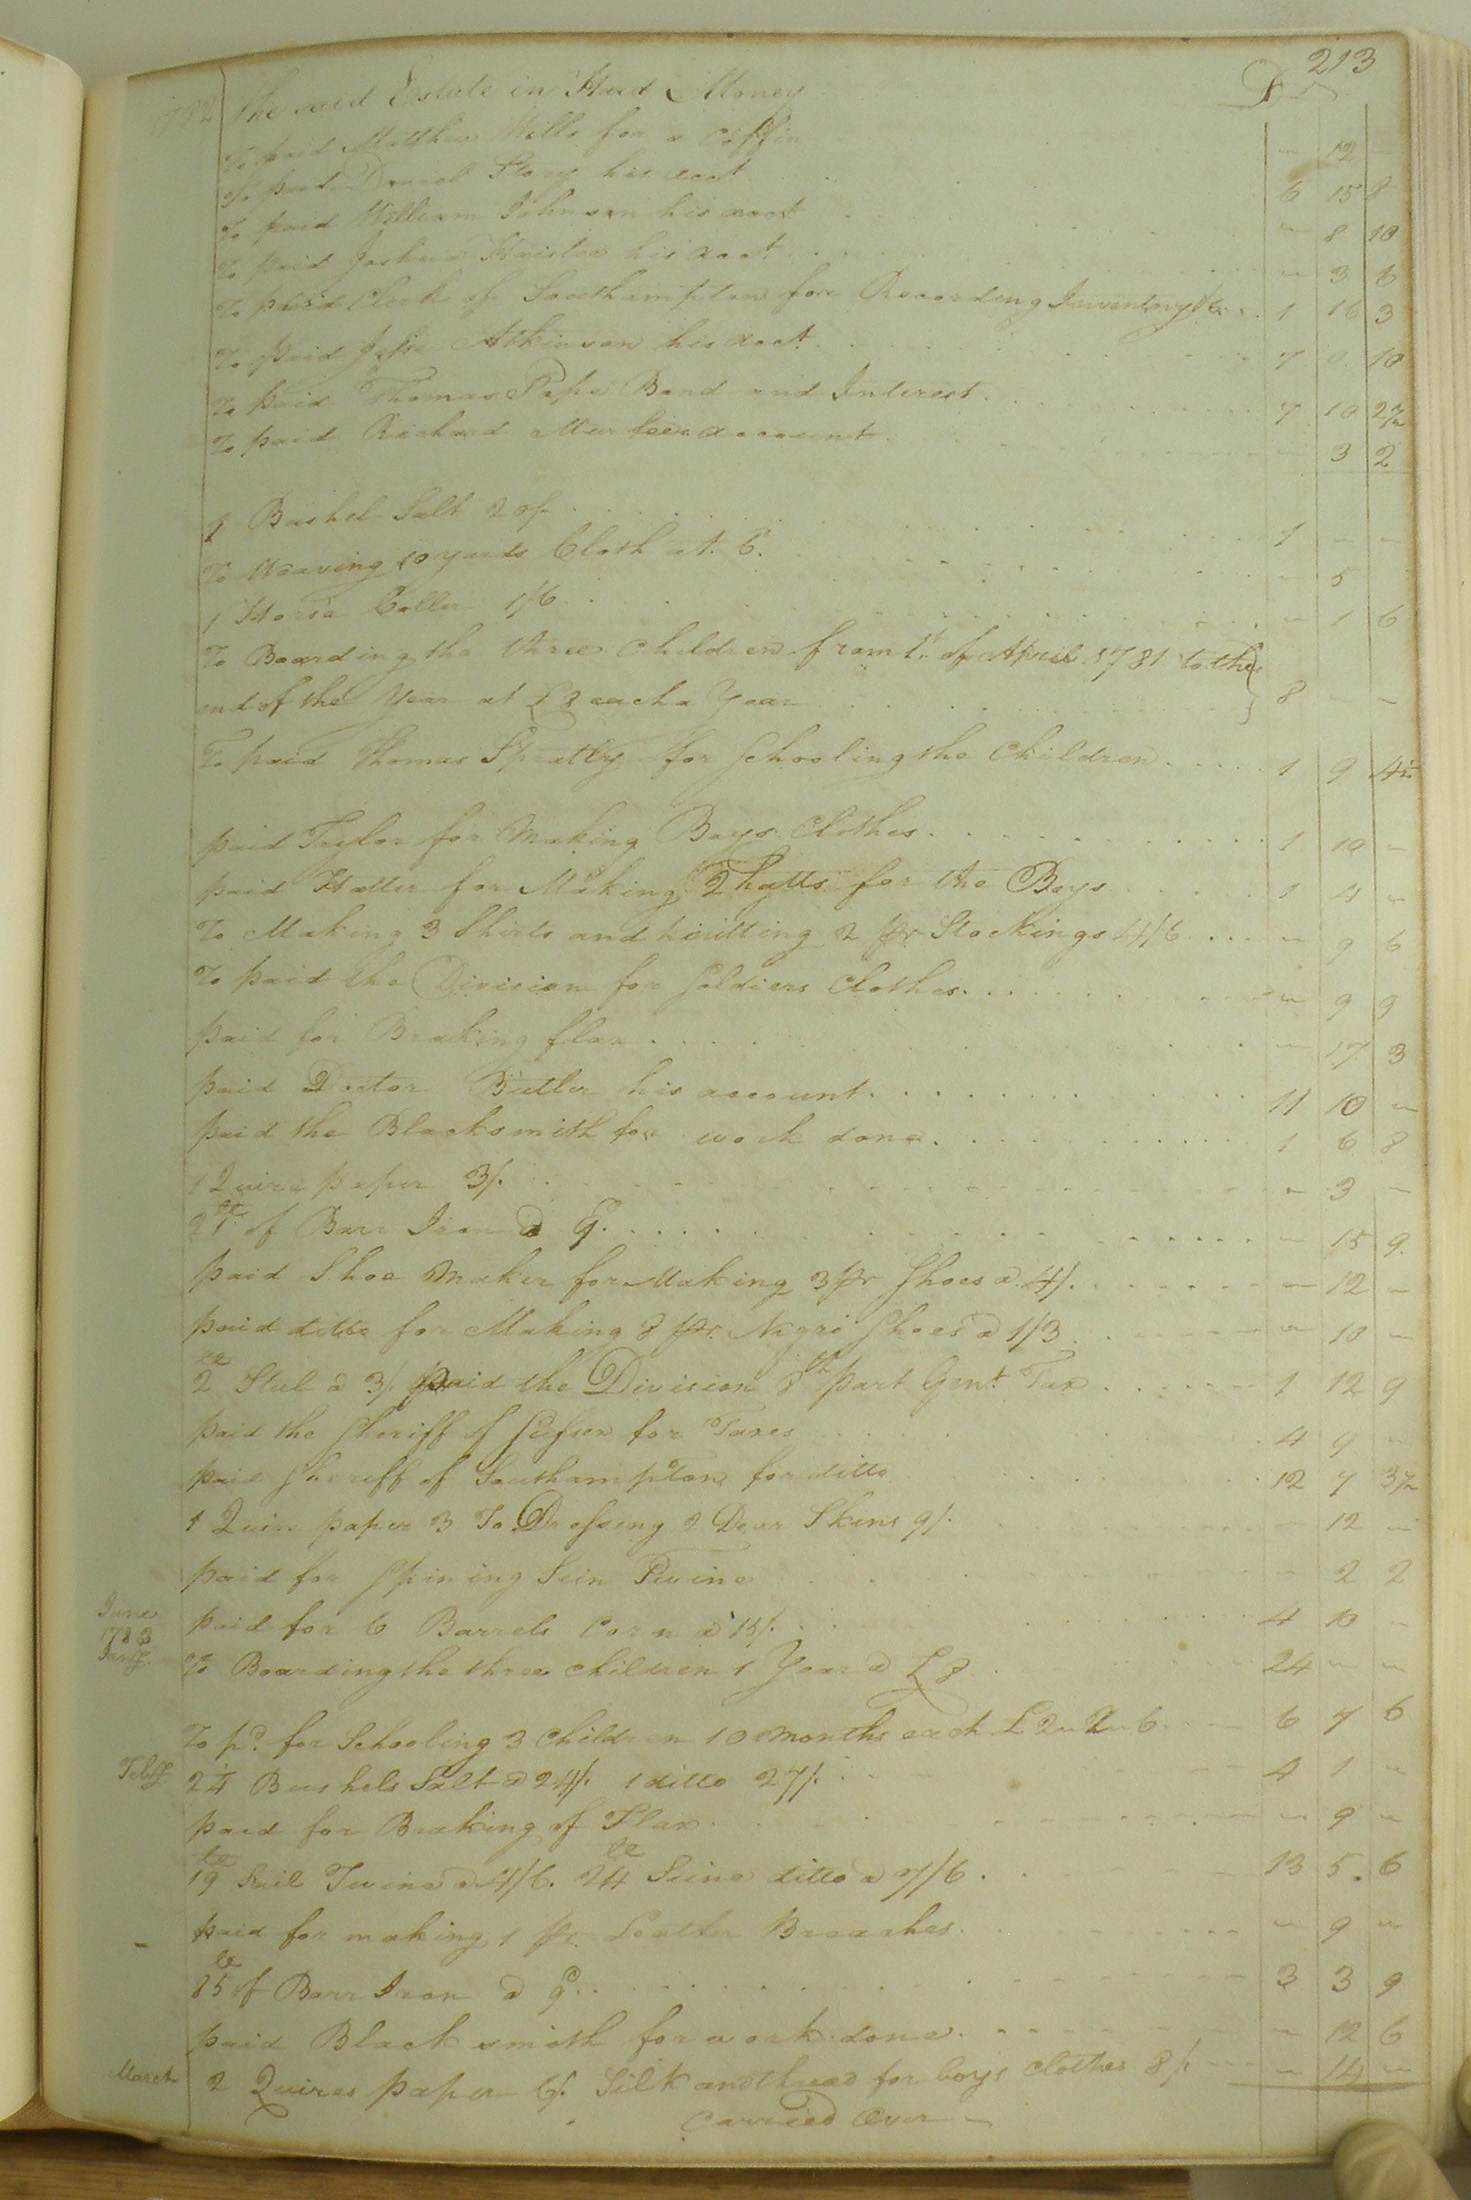 213
1782 The said Estate in Hard Money Dr
To paid Matthew Wills for a Coffin - 12 -
To paid Daniel Story his acct 6 15 8
To paid William Johnson his acct - 8 10
To paid Joshua his acct - 3 8
To paid Clerk of Southampton for Recording Inventory &c 1 16 3
To paid Jesse Atkinson his acct 7 0 10
To paid Thomas Pope Bond and Interest 7 10 2½
To paid Richard account - 3 2
1 Bushel Salt 20/ 1 - -
To Weaving 10 yards Cloth at 6. - 5
1 Horse Coller 1/6 - 1 6
To Boarding the three Children from 1st of April 1781 to the
end of the Year at £3 each a Year 8 - -
To paid Thomas Spratly for Schooling the Children 1 9 4½
paid Taylor for Making Boys Clothes 1 10 -
paid Hatter for Making 2 hatts for the Boys 1 4 -
To Making 3 Shirts and knitting 2 pr Stockings 4/6 - 9 6
To paid the Division for Soldiers Clothes - 9 9
paid for Braking flax - 17 3
paid Doctor Butler his account 11 10 -
paid the Blacksmith for work done 1 6 8
1 Quire paper 3/. - 3 -
21 lb of Barr Iron a 9. - 15 9.
paid Shoe Maker for Making 3 pr Shoes a 4/. - 12 -
paid ditto for Making 8 pr. Negro Shoes a 1/3 - 10 -
2 lb Steel a 3/. paid the Division 8th part Gent Tax 1 12 9
paid the Sheriff of Sussex for Taxes 4 9 -
paid Sheriff of Southampton for ditto 12 7 3½
1 Quire paper 3 To Dressing 2 Dear Skins 9/. - 12 -
paid for Spining Sein Twine - 2 2
June paid for 6 Barrels Corn a 15/. 4 10 -
1783
Jany. To Boarding the three children 1 Year a £8 24 - -
To pd. for Schooling 3 Children 10 months each £2"2"6 6 7 6
2¼ Bushels Salt a 24/. 1 ditto 27/. 4 1 -
paid for Braking of Flax - 9 -
19 lb Seil Twine a 4/6. 24 lb Seine ditto a 7/6 13 5. 6
paid for making 1 pr. Leather Breaches - 9 -
85 lb of Barr Iron a 9d. 3 3 9
paid Black smith for work done - 12 6
March 2 Quires paper 6/. Silk and thread for boys clothes 8/. - 14 -
Carried Over